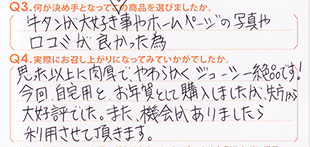 Q3.何が決め手となってこの商品を選びましたか。
牛タンが大好き事やホームページの写真や
口コミが良かった為
Q4.実際にお召し上がりになってみていかがでしたか。
思った以上に肉厚でやわらかくジューシー絶品です!
今回、自宅用と、お年賀として購入しましたが、先方から
大好評でした。また、機会がありましたら
利用させて頂きます。